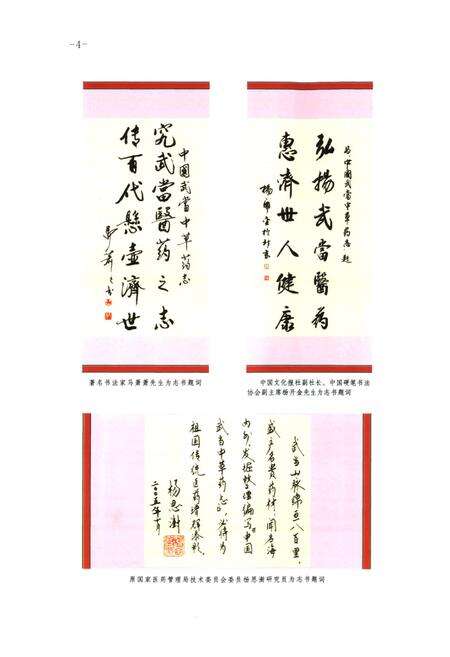 -4-
中国武当中草药志
究武當醫药之志
传百代懸壶濟世
馬萧萧书
为中国武當中草药志题
弘揚武當醫药
惠濟世人健康
杨开金於北京
著名书法家马萧萧先生为志书题词
中国文化报社副社长、中国硬笔书法
协会副主席杨开金先生为志书题词
武当山脉绵亘八百里，
盛产名贵药材，闻名海
内外，发掘整理编写《中国
武当中草药志》，必将为
祖国传统医药增辉添彩。
杨思澍
二〇〇五年十月
原国家医药管理局技术委员会委员杨思澍研究员为志书题词